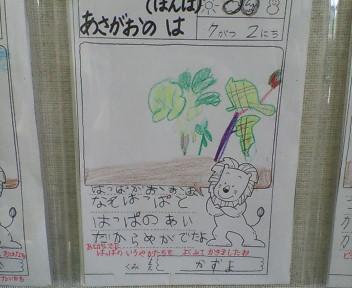 (ほんば)
あさがおの は
7がつ 2にち
はっぱが おおきい
なえ はっぱと
はっぱの あい
だからめがでたよ
はっぱの いろや かたちを よくみて かきましたね
くみ
かずよ